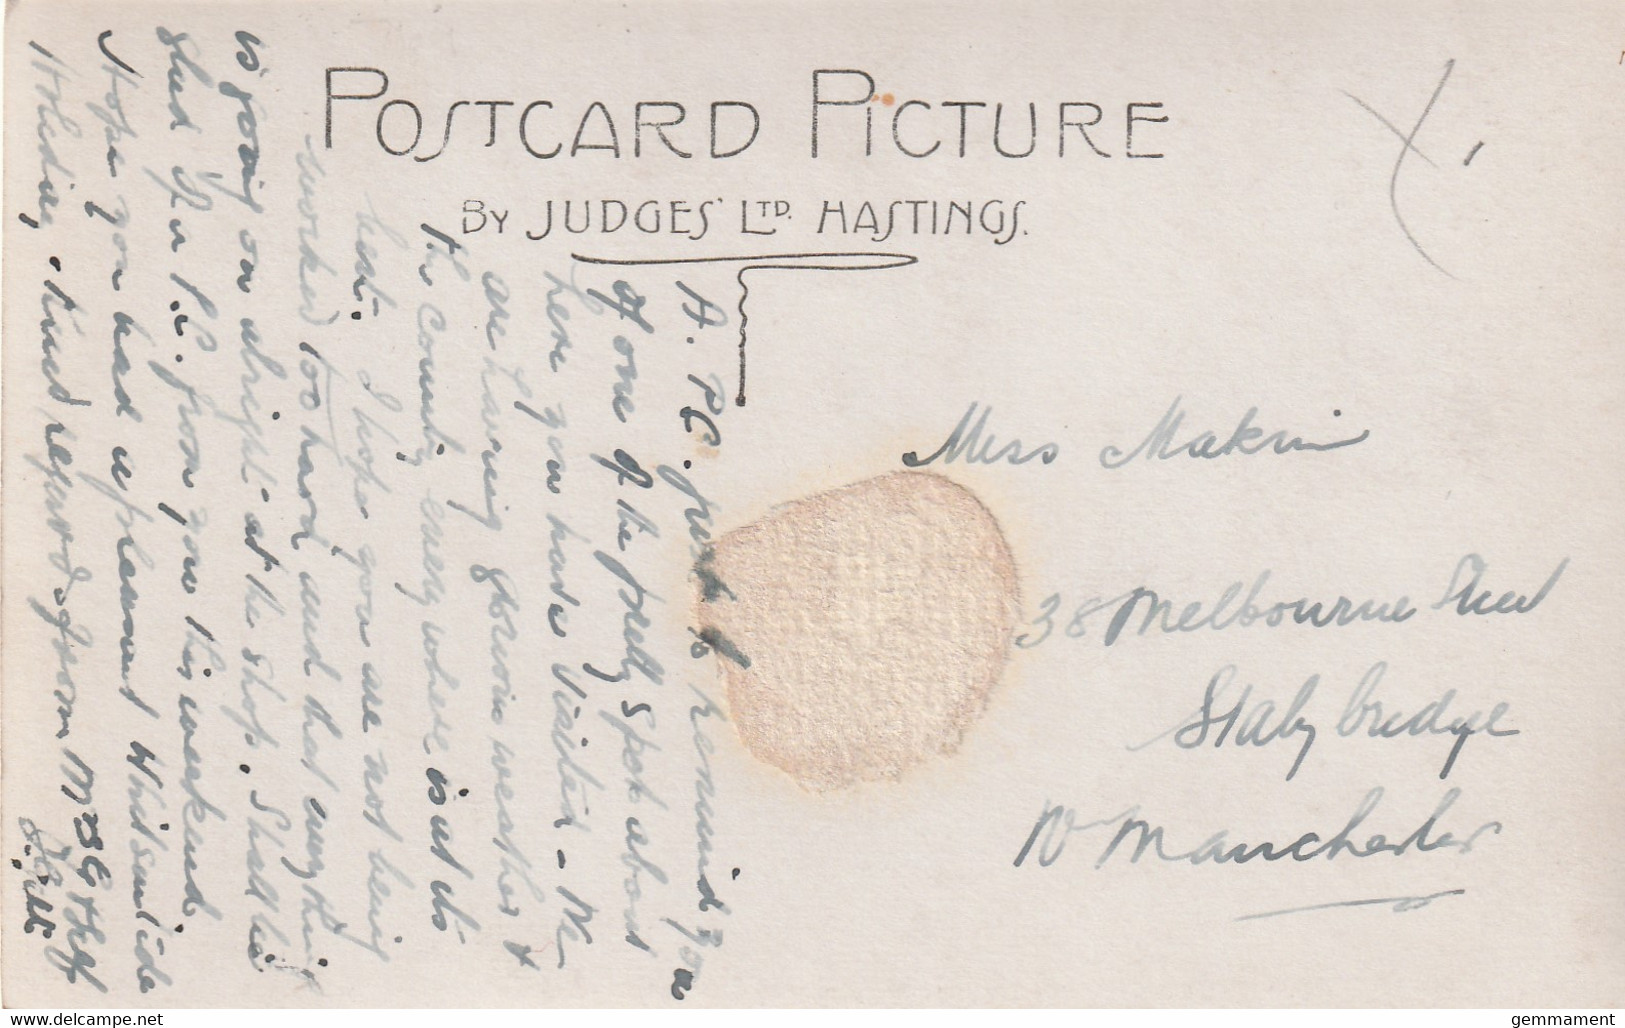 POSTCARD PICTURE
BY JUDGES' LTD. HASTINGS.
A. PC. just to remind you
of one of the pretty spots about
here you have visited. We
are having glorious weather &
the country everywhere is at its
best. I hope you are not being
worked too hard and that everything
is going on alright at the shop. Shall be
glad of a P.C. from you this weekend.
Hope you had a pleasant Whitsuntide
Holiday. Kind regards from
Miss Makin
38 Melbourne Street
Stalybridge
Nr Manchester
gemmament